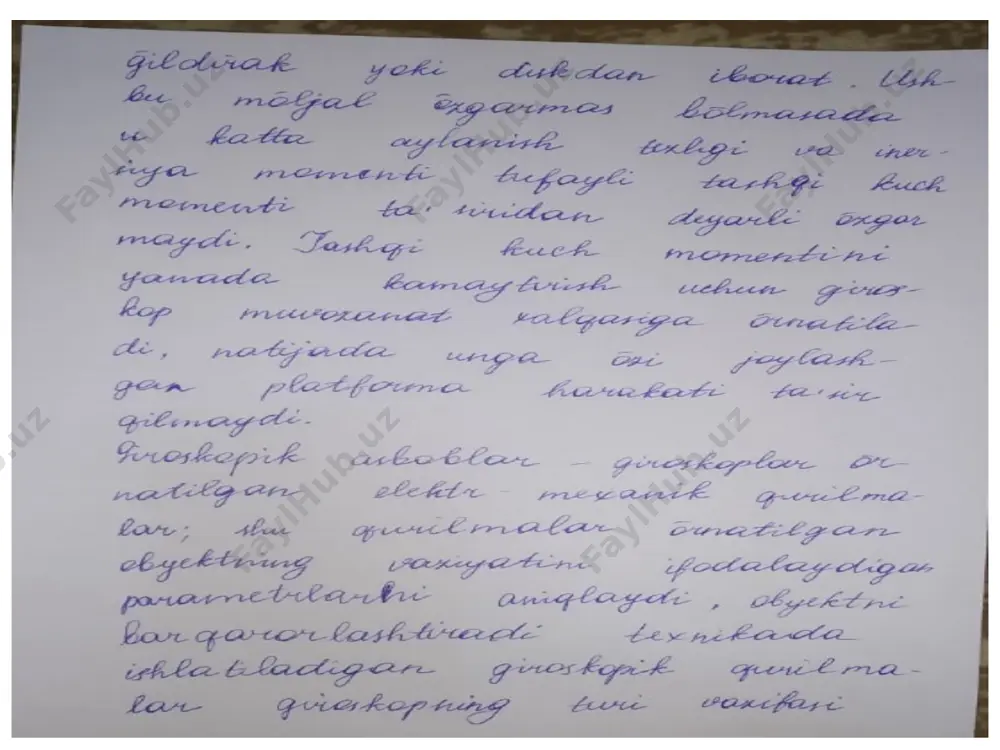 ğildirak yoki diskdan iborat. Ush-
bu mōljal ōzgarmas bōlmasada
u katta aylanish tezligi va iner-
siya momenti tufayli tashqi kuch
momenti ta'siridan deyarli ōzgar
maydi. Tashqi kuch momentini
yanada kamaytirish uchun giros-
kop muvozanat xalqasiga ōrnatila-
di, natijada unga ōzi joylash-
gan platforma harakati ta'sir
qilmaydi.
Giroskopik asboblar - giroskoplar ōr
natilgan elektr - mexanik qurilma-
lar; shu qurilmalar ōrnatilgan
obyektning vaziyatini ifodalaydigan
parametrlarni aniqlaydi, obyektni
barqarorlashtiradi texnikada
ishlatiladigan giroskopik qurilma-
lar giroskopning turi vazifasi
FaylHub.uz
FaylHub.uz
FaylHub.uz
b.uz
FaylHub.uz
FaylHub.uz